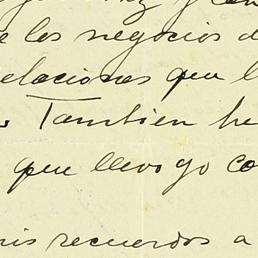 de los negocios d
elaciones que l
Tambien he
que llevo yo co
mis recuerdos a